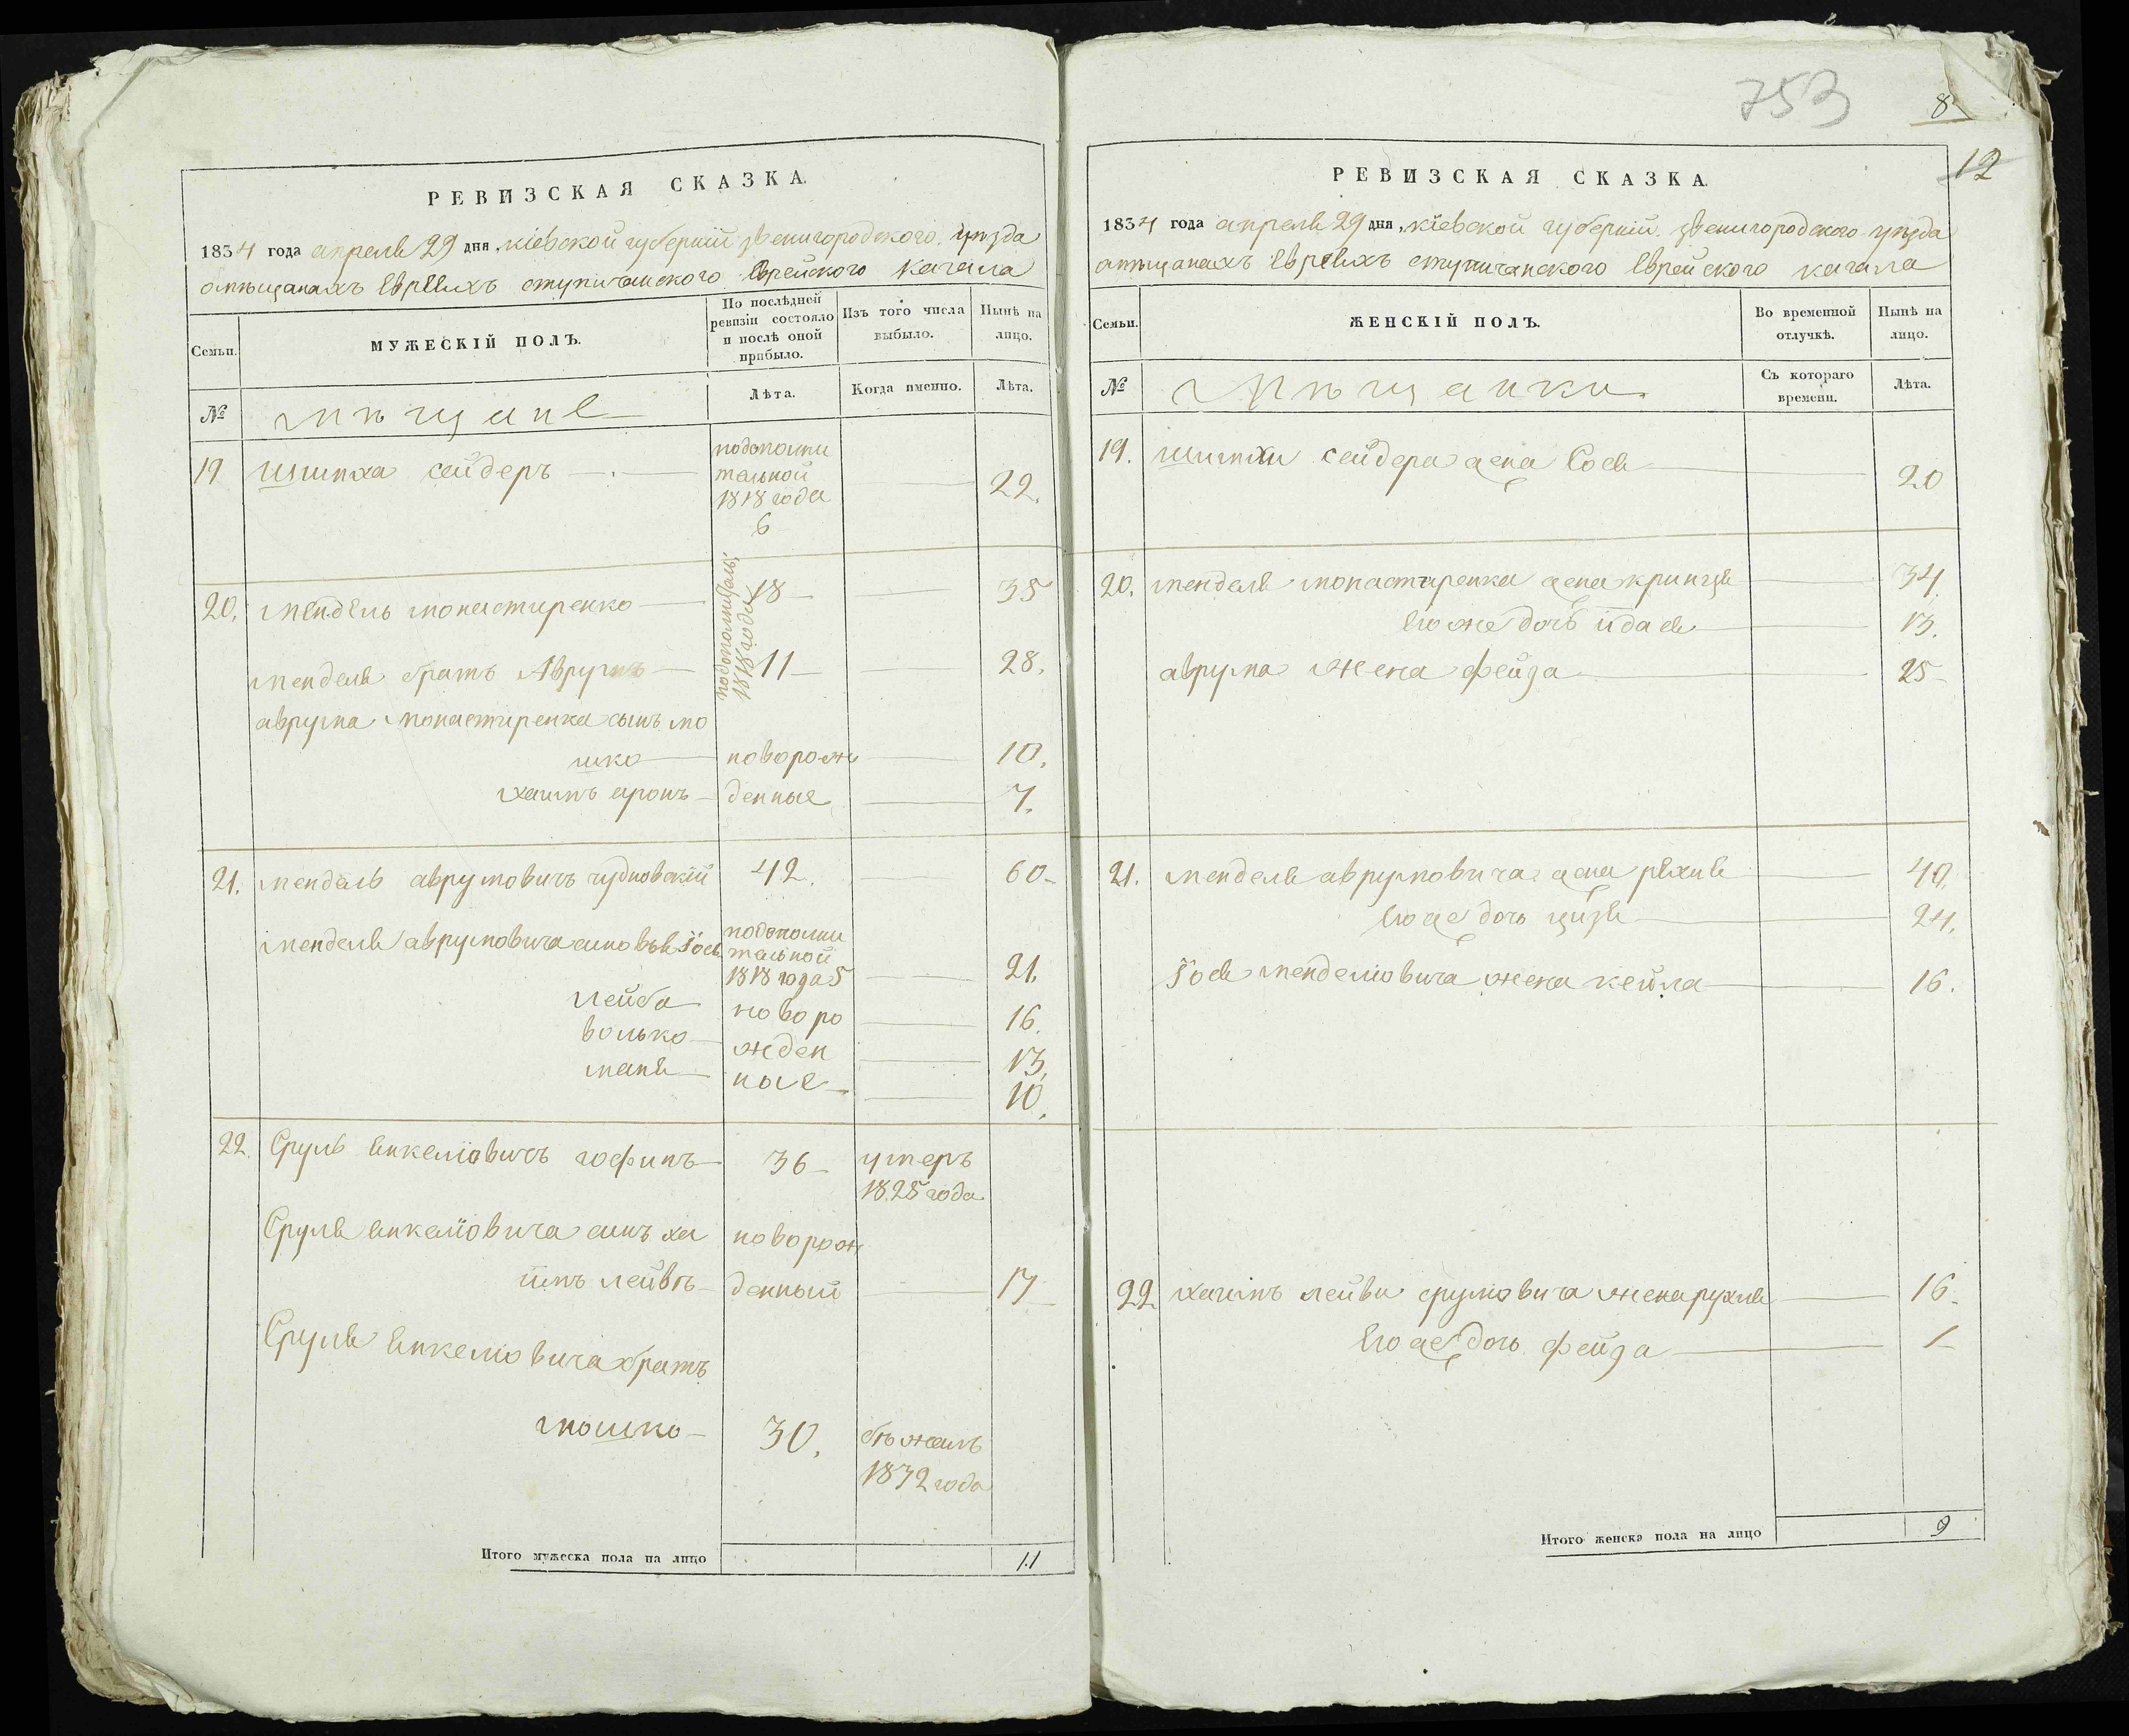 РЕВИЗСКАЯ СКАЗКА.
1834 года апреля 29 дня, кіевской губерніи звенигородского уезда
омещанахъ Евреяхъ ступичанского Еврейского кагала
Семьи.
МУЖЕСКІЙ ПОЛЪ.
По послѣдней ревизіи состояло и послѣ оной прибыло.
Изъ того числа выбыло.
Нынѣ на лицо.
№
мѣщане
Лѣта.
Когда именно.
Лѣта.
19 Шимха сайдеръ подополнительной 1818 года 6 22.
20. Мендель монастиренко подополнитель: 1818 года 18 35
менделя братъ Аврумъ 11 28.
аврума монастиренка сынъ мошко новорож 10.
хаимъ аронъ денные 7.
21. мендель аврумовичъ чудновскій 42. 60
менделя аврумовича синовья Іось подополнительной 1818 года 5 21.
лейба новоро 16.
волько жден 13.
маня ные 10.
22. Сруль янкеліовичъ гофинъ 36 умеръ 1825 года
Сруля янкеліовича синъ хаимъ лейвъ новорожденный 17
Сруля янкеліовича братъ
мошко 30. бѣжалъ 1832 года
Итого мужеска пола на лицо 11
753
8
12
РЕВИЗСКАЯ СКАЗКА.
1834 года апреля 29 дня, кіевской губерніи звенигородского уезда
омещанахъ Евреяхъ ступичанского Еврейского кагала
Семьи.
ЖЕНСКІЙ ПОЛЪ.
Во временной отлучкѣ.
Нынѣ на лицо.
№
Мѣщанки
Съ котораго времени.
Лѣта.
19. Шимхи сейдера жена Сося 20
20. менделя монастиренка жена кринця 34
его же дочъ идася 13.
аврума жена фейга 25
21. менделя аврумовича жена рѣхля 40.
его же дочь цизя 24.
Іося менделіовича жена кейла 16.
22 хаимъ лейви сруліовича жена рухля 16
его же дочь фейга 1
Итого женска пола на лицо 9